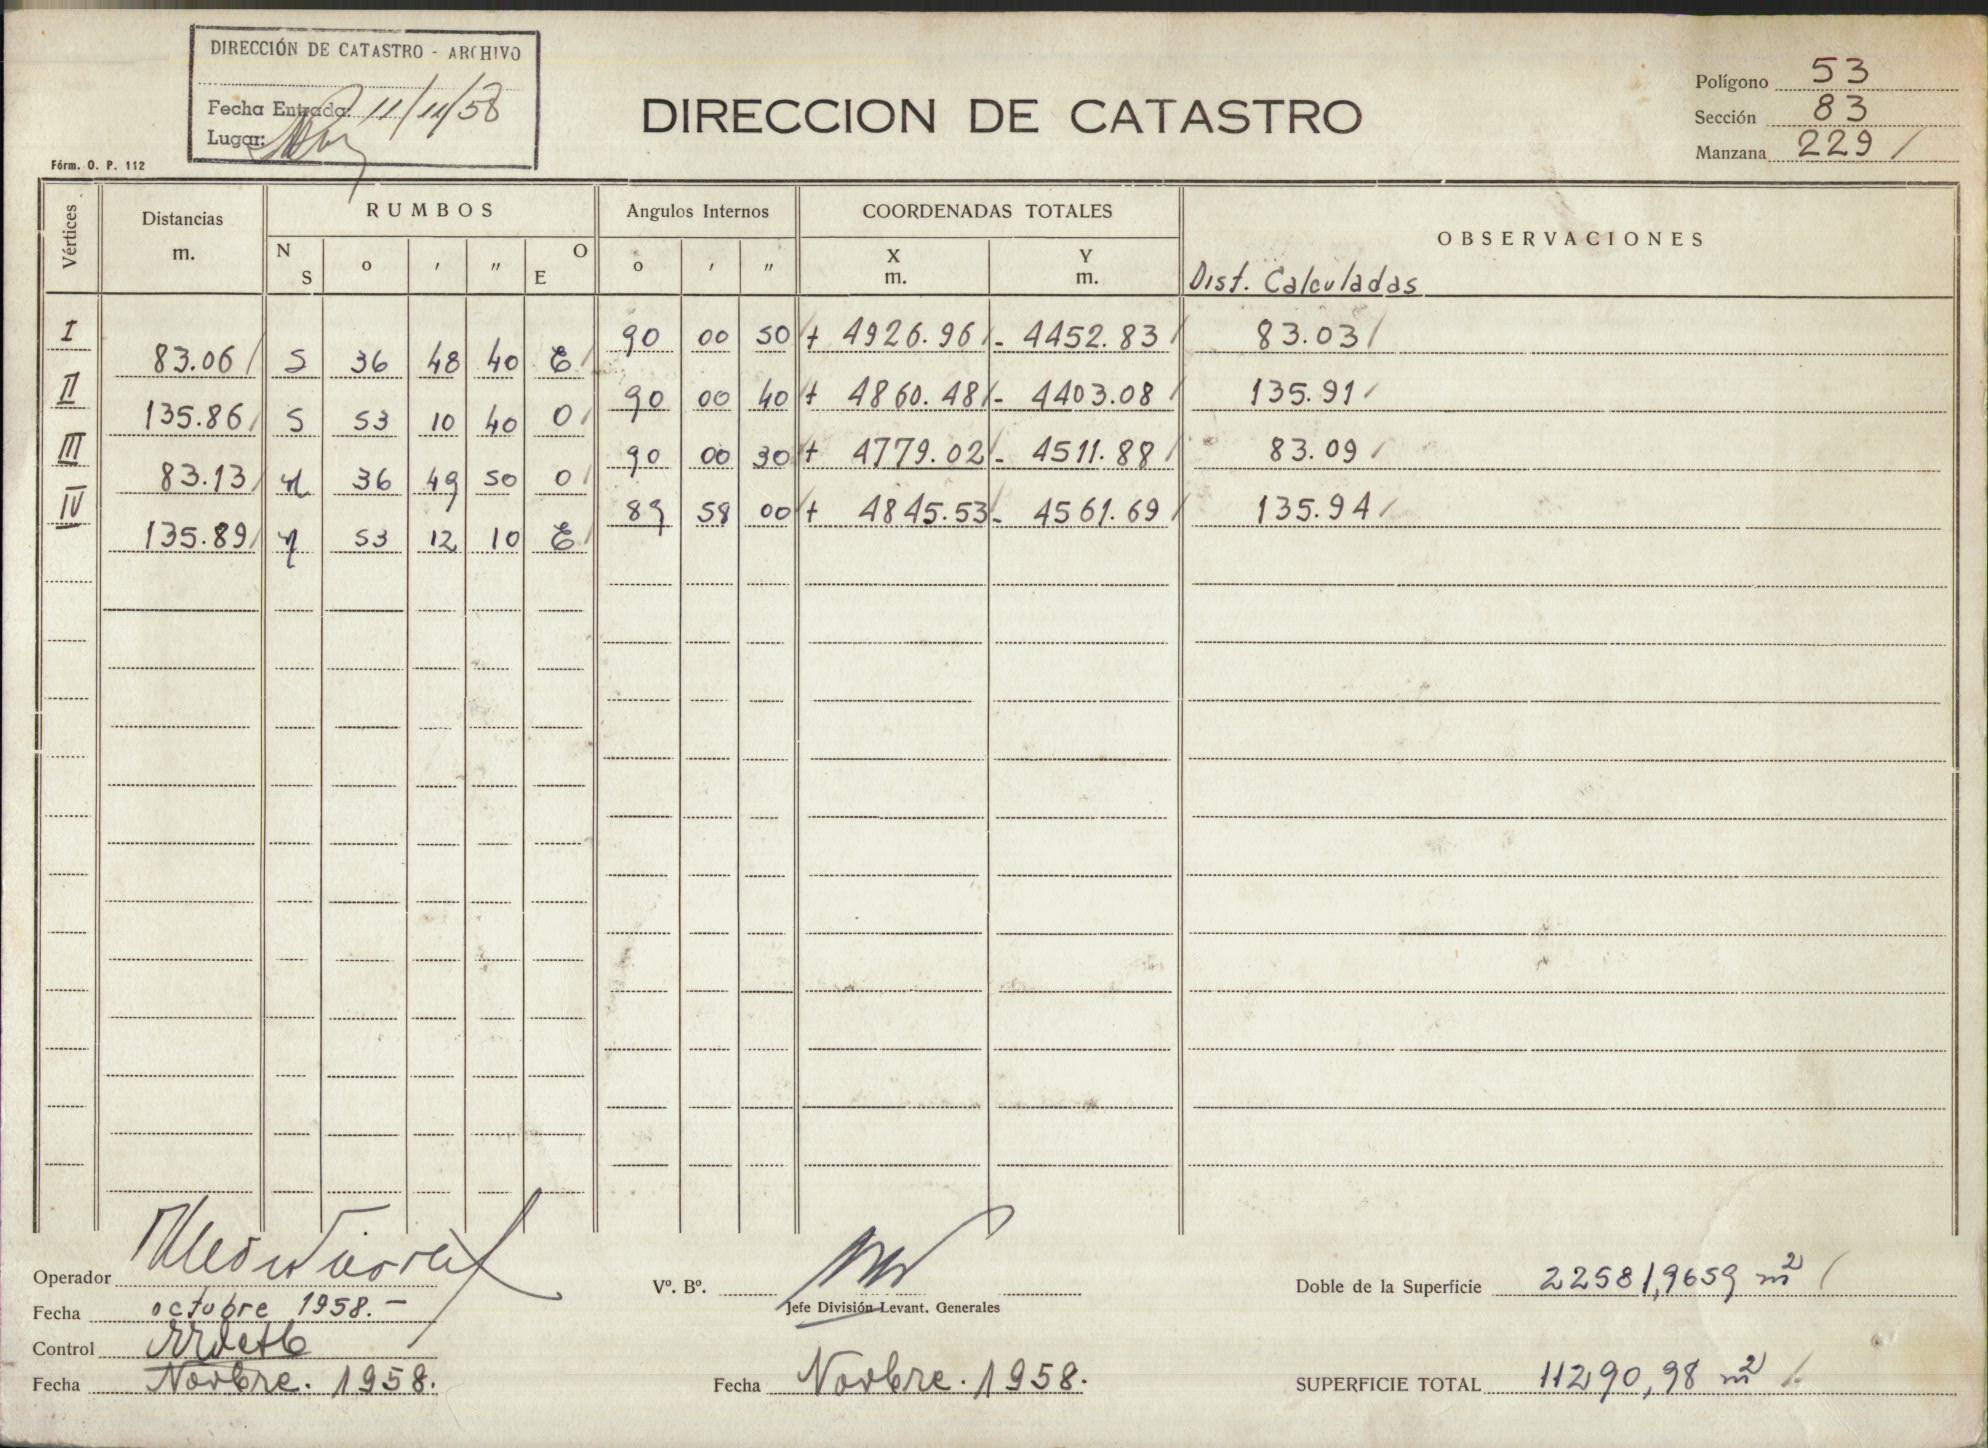 DIRECCIÓN DE CATASTRO - ARCHIVO
Fecha Entrada: 11/11/58
Lugar:
Fórm. O. P. 112
DIRECCION DE CATASTRO
Polígono 53
Sección 83
Manzana 229 /
Vértices Distancias m. RUMBOS Angulos Internos COORDENADAS TOTALES OBSERVACIONES
N S o ' " O E o ' " X m. Y m. Dist. Calculadas
I 90 00 50 + 4926.96 / - 4452.83 / 83.03 /
83.06 / S 36 48 40 E /
II 90 00 40 + 4860.48 / - 4403.08 / 135.91 /
135.86 / S 53 10 40 O /
III 90 00 30 + 4779.02 / - 4511.88 / 83.09 /
83.13 / N 36 49 50 O /
IV 89 58 00 + 4845.53 / - 4561.69 / 135.94 /
135.89 / N 53 12 10 E /
Operador
Fecha octubre 1958.-
Control
Fecha Novbre. 1958.
Vº. Bº.
Jefe División Levant. Generales
Fecha Novbre. 1958.
Doble de la Superficie 22581,9659 m² /
SUPERFICIE TOTAL 11290,98 m² /